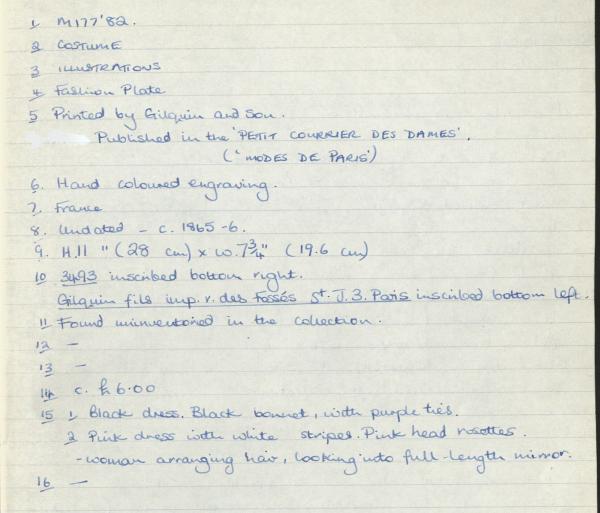 1 M177'82.
2 COSTUME
3 ILLUSTRATIONS
4 Fashion Plate
5 Printed by Gilquin and Son.
Published in the 'PETIT COURRIER DES DAMES'.
('MODES DE PARIS')
6. Hand coloured engraving.
7. France
8. Undated - c. 1865-6.
9. H.11" (28 cm) x W.7 3/4" (19.6 cm)
10 3493 inscribed bottom right.
Gilquin fils imp. r. des Fossés St. J. 3. Paris inscribed bottom left.
11 Found uninventoried in the collection.
12 -
13 -
14 c. £6.00
15 1, Black dress. Black bonnet, with purple ties.
2 Pink dress with white stripes. Pink head rosettes.
- woman arranging hair, looking into full-length mirror.
16 -